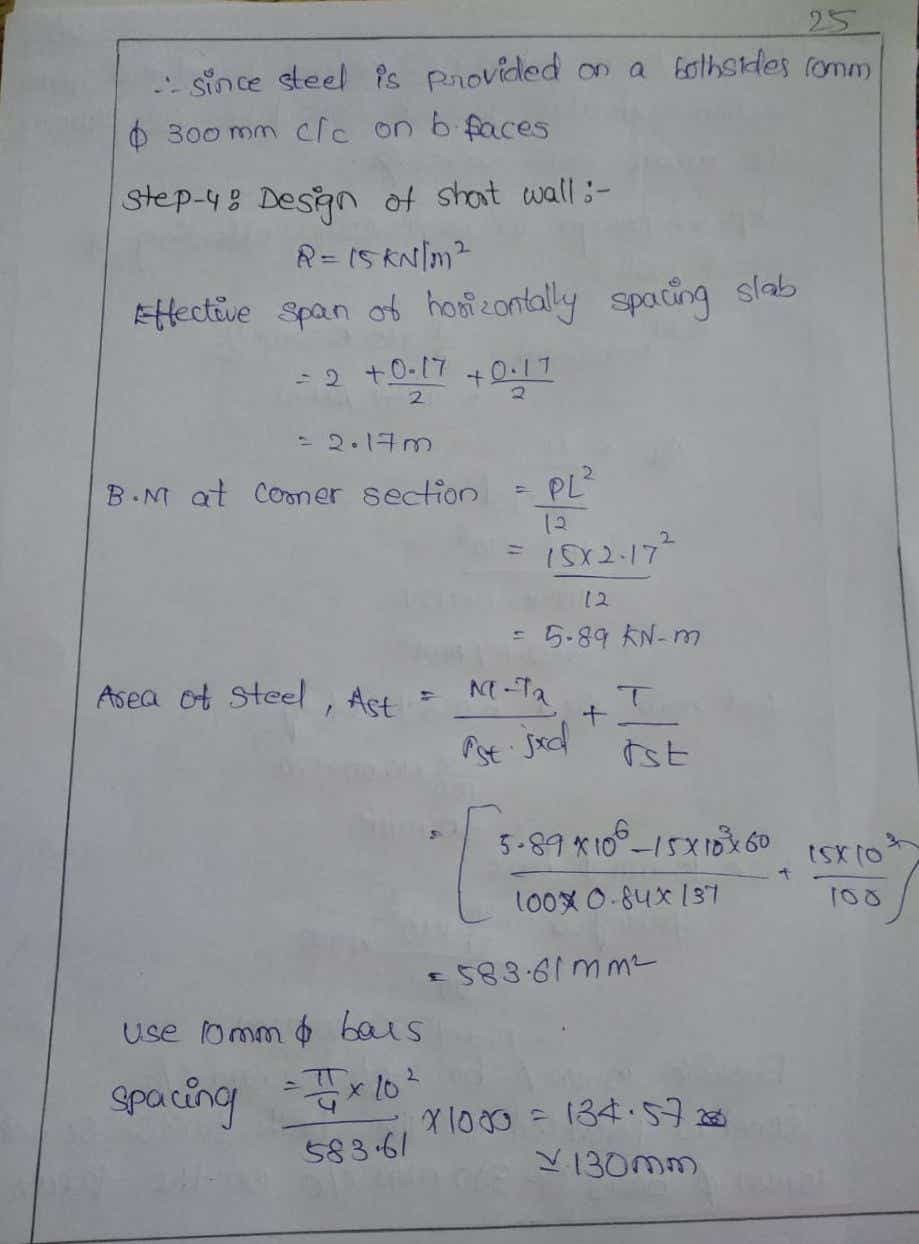 25
∴ since steel is provided on a bothsides 10mm
ϕ 300mm c/c on b.faces
Step-4: Design of short wall :-
R = 15 KN/m²
Effective span of horizontally spacing slab
= 2 + 0.17/2 + 0.17/2
= 2.17m
B.M at corner section = PL²/12
= 15x2.17²/12
= 5.89 KN-m
Area of steel, Ast = M-Tx/σst.jxd + T/σst
= [5.89x10⁶-15x10³x60/100x0.84x137 + 15x10³/100]
= 583.61mm²
use 10mm ϕ bars
spacing = π/4 x 10²/583.61 x1000 = 134.57
≃ 130mm